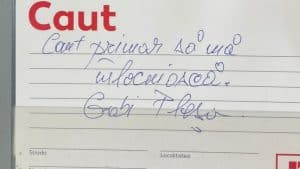 Caut
Caut primar să mă
înlocuiască.
Gabi
Strada
Localitatea